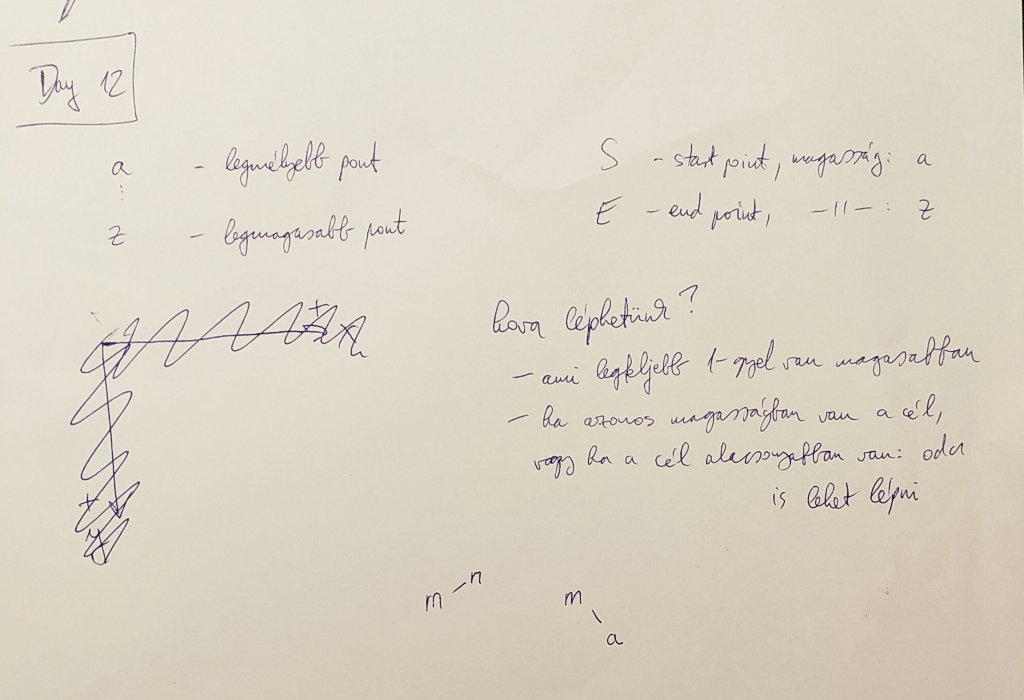 Day 12
a - legmélyebb pont
⋮
z - legmagasabb pont
S - start point, magasság: a
E - end point, -11- : z
hova léphetünk?
- ami legfeljebb 1-gyel van magasabban
- ha azonos magasságban van a cél,
vagy ha a cél alacsonyabban van: oda
is lehet lépni
m n
m
a